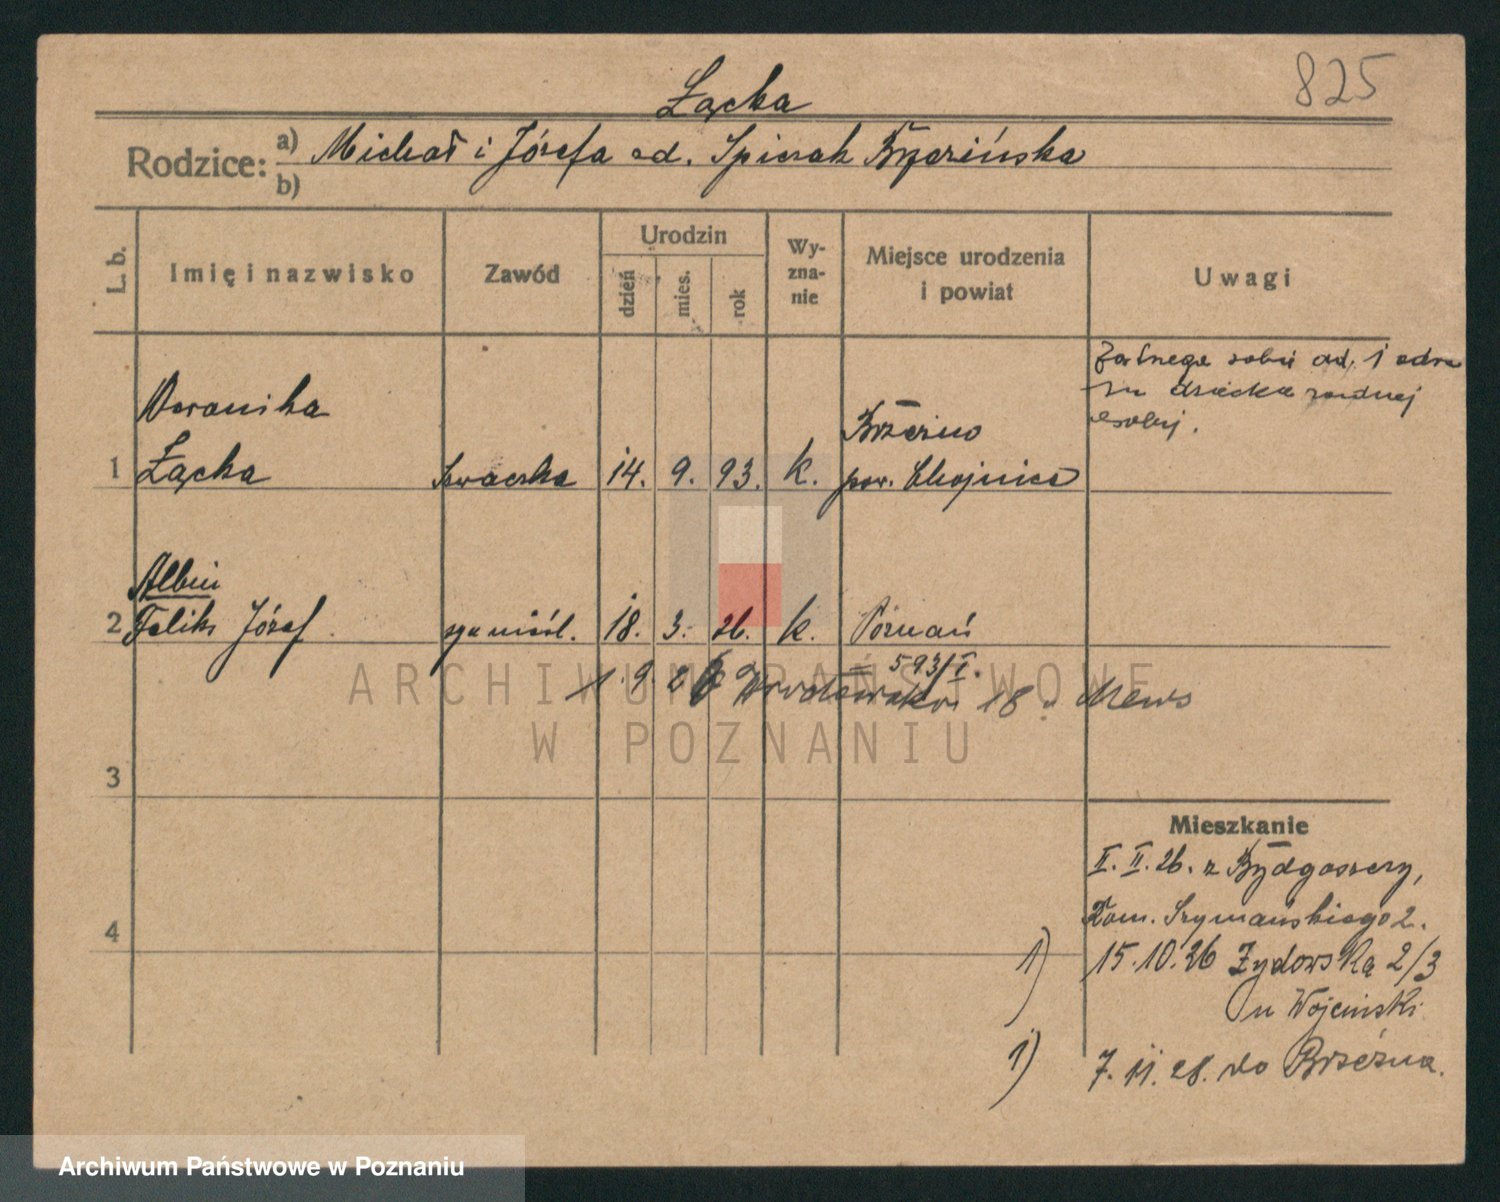 825
Łącka
Rodzice: a) Michał i Józefa od. Spiczak Brzezińska
b)
L. b.
Imię i nazwisko
Zawód
Urodzin
dzień
mies.
rok
Wy-
zna-
nie
Miejsce urodzenia
i powiat
Uwagi
1
Weronika
Łącka
szwaczka
14.
9.
93.
k.
Brzeźno
pow. Chojnice
2
Albin
Feliks Józef
18.
3.
26.
k.
Poznań
= 593/I.
18
3
4
Mieszkanie
II. 26. z Bydgoszczy,
Szymańskiego 2.
1) 15.10.26 Żydowska 2/3
u Wojciński
1) 7.11.28. do Brzeźna.
ARCHIWUM PAŃSTWOWE
W POZNANIU
Archiwum Państwowe w Poznaniu